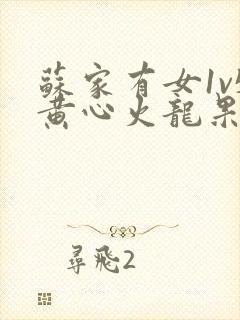 蘇家有女1v
黄心火龍果
尋飛2